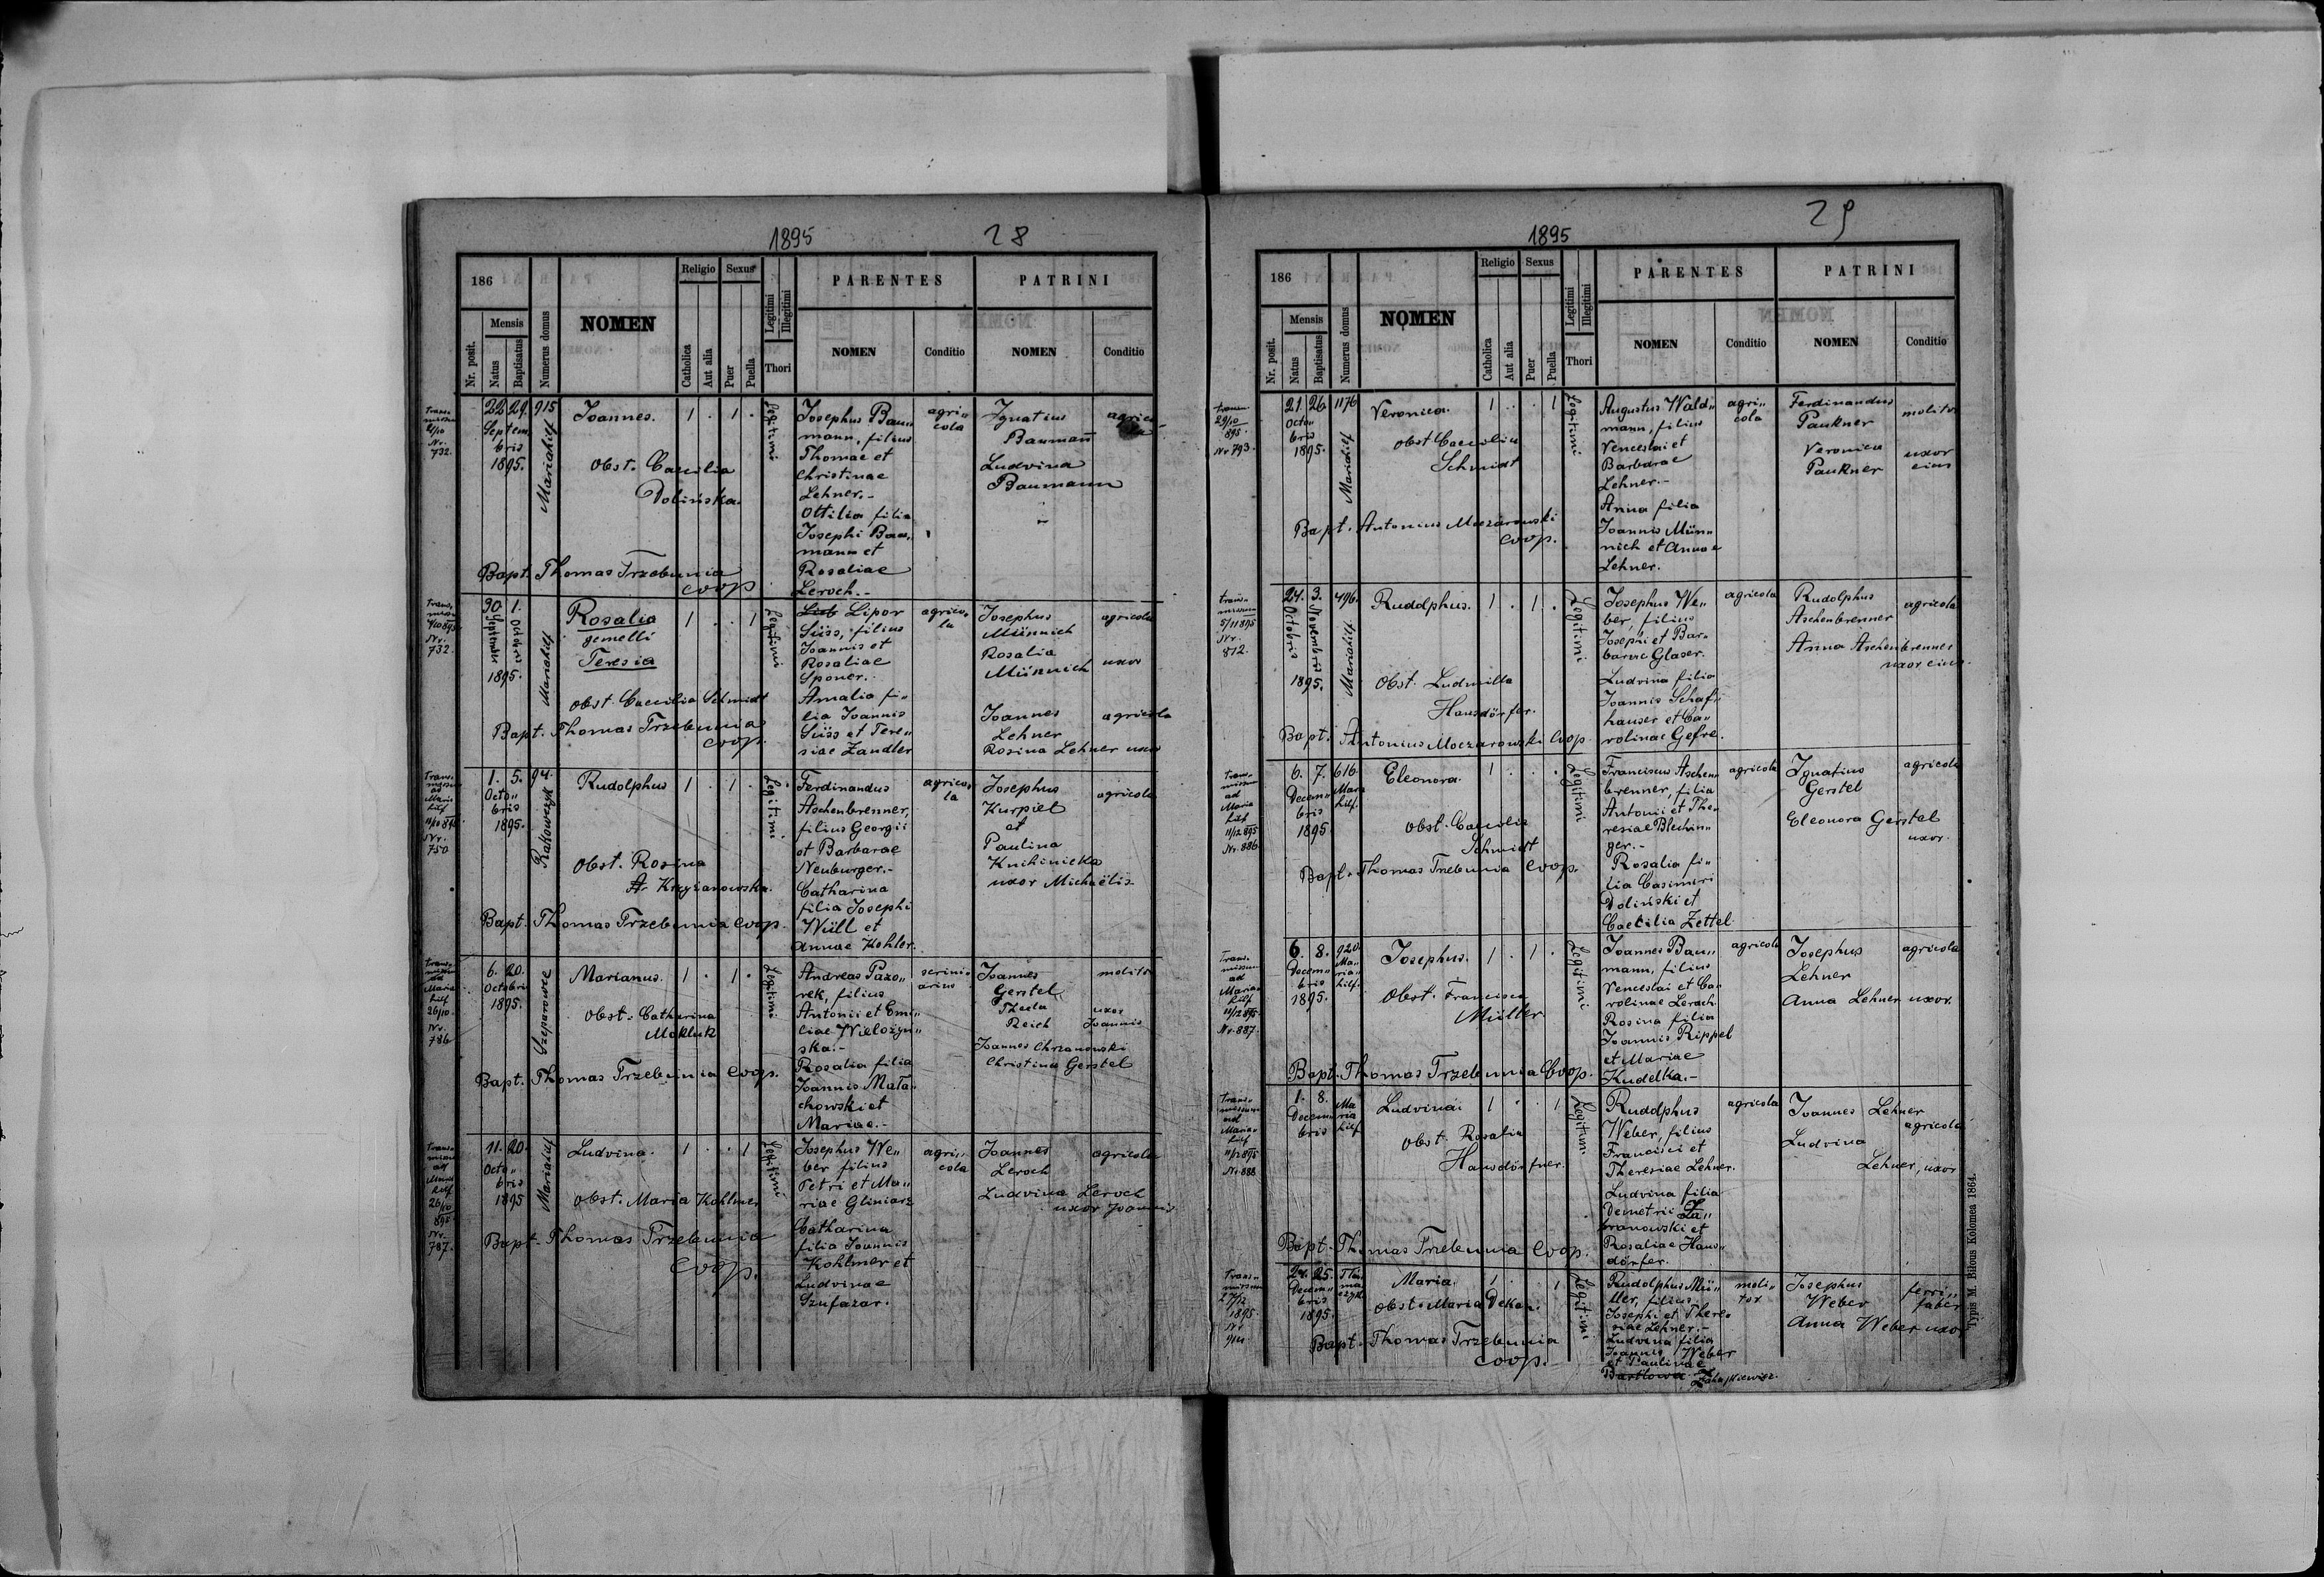 1895
28
186
Mensis
Nr. posit.
Natus
Baptisatus
Numerus domus
NOMEN
Religio
Catholica
Aut alia
Sexus
Puer
Puella
Legitimi
Illegitimi
Thori
PARENTES
NOMEN
Conditio
PATRINI
NOMEN
Conditio
Nr. 732.
22 29. 915
Septem
bris
1895.
Mariahilf
Joannes. 1 . 1 .
Obst. Caecilia
Dolińska.
Bapt. Thomas Trzebunia
coop
Legitimi
Josephus Bau„
mann, filius
Thomae et
Christinae
Lehner.-
Ottilia filia
Josephi Bau„
mann et
Rosaliae
Leroch.-
agri„
cola
Ignatius
Baumann
Ludvina
Baumann
agrico
Nr. 732.
30 1.
September
Octobris
1895.
Mariahilf
Rosalia
gemelli
Teresia
1 . . 1
obst. Caecilia Schmidt
Bapt. Thomas Trzebunia
coop.
Legitimi
Lipor
Süss, filius
Joannis et
Rosaliae
Sponer.
Amalia fi„
lia Joannis
Süss et Tere„
siae Zandler
agrico„
la
Josephus
Münnich
Rosalia
Münnich
agricola
uxor
Joannes
Lehner
agricola
Rosina Lehner uxor
Nr. 750
1. 5. 94.
Octo„
bris
1895.
Rakowczyk
Rudolphus 1 . 1 .
Obst. Rosina
Krzyżanowska.
Bapt. Thomas Trzebunia coop.
Legitimi
Ferdinandus
Aschenbrenner,
filius Georgii
et Barbarae
Neuburger.-
Catharina
filia Josephi
Wüll et
Annae Kohler.
agrico„
la
Josephus
Kurpiel
et
Paulina
Knihinicka
uxor Michaëlis
agricola
26/10
Nr. 786
6. 20.
Octobris
1895.
Szeparowce
Marianus. 1 . 1 .
Obst. Catharina
Bapt. Thomas Trzebunia coop.
Legitimi
Andreas Pazo„
rek, filius
Antonii et Emi„
liae Wielożyn„
ska.-
Rosalia filia
Joannis Mała„
chowski et
Mariae.-
scrini„
arius
Joannes
Gerstel
molitor
Thecla
Reich
uxor
Joannis
Joannes Chrzanowski
Christina Gerstel
26/10
895
Nr. 787.
11. 20.
Octo„
bris
1895
Mariahilf
Ludvina. 1 . . 1
Obst. Maria Kohlmer
Bapt. Thomas Trzebunia
coop.
Legitimi
Josephus We„
ber filius
Petri et Ma„
riae Gliniarz
Catharina
filia Joannis
Kohlmer et
Ludvinae
Szufazar.
agri„
cola
Joannes
Leroch
agricola
Ludvina Leroch
uxor Joannis
1895
29
186
Mensis
Nr. posit.
Natus
Baptisatus
Numerus domus
NOMEN
Religio
Catholica
Aut alia
Sexus
Puer
Puella
Legitimi
Illegitimi
Thori
PARENTES
NOMEN
Conditio
PATRINI
NOMEN
Conditio
29/10
895
Nr 793.
21. 26. 1176
Octo„
bris
1895.
Mariahilf
Veronica. 1 . . 1
obst Caecilia
Schmidt
Bapt. Antonius Moczarowski
coop.
Legitimi
Augustus Wald„
mann, filius
Venceslai et
Barbarae
Lehner.-
Anna filia
Joannis Mün„
nich et Annae
Lehner.
agri„
cola
Ferdinandus
Paukner
molitor
Veronica
Paukner
uxor
eius
5/11 895
Nr. 812.
24. 3. 496.
Octobris
Novembris
1895.
Mariahilf
Rudolphus. 1 . 1 .
Obst. Ludmilla
Hansdörfer.
Bapt. Antonius Moczarowski coop.
Legitimi
Josephus We„
ber, filius
Josephi et Bar„
barae Glaser.
Ludvina filia
Joannis Schaf„
hauser et Ca„
rolinae Gefre.
agricola
Rudolphus
Aschenbrenner
agricola
Anna Aschenbrenner
uxor eius.
11/12 895
Nr. 886
6. 7. 616
Decem„
bris
1895
Maria
hilf.
Eleonora. 1 . .
obst. Caecilia
Schmidt
Bapt. Thomas Trzebunia coop.
Legitimi
Franciscus Aschen„
brenner, filia
Antonii et The„
resiae Blechin„
ger.-
Rosalia fi„
lia Casimiri
Doliński et
Caecilia Zettel.
agricola
Ignatius
Gerstel
agricola
Eleonora Gerstel
uxor.
11/12 895
Nr. 887.
6. 8. 920.
Decem„
bris
1895.
Ma„
ria„
hilf.
Josephus. 1 . 1 .
Obst. Francisca
Müller
Bapt. Thomas Trzebunia Coop.
Legitimi
Joannes Bau„
mann, filius
Venceslai et Ca„
rolinae Lerach.
Rosina filia
Joannis Rippel
et Mariae
Kudelka.-
agricola
Josephus
Lehner
agricola
Anna Lehner uxor.
11/12 895
Nr. 888
1. 8.
Decem„
bris
Ma
ria
hilf
Ludvina. 1 . . 1
obst. Rosalia
Hansdörfner.
Bapt. Thomas Trzebunia coop.
Legitimi
Rudolphus
Weber, filius
Francisci et
Theresiae Lehner.
Ludvina filia
Demetrii
et
Rosaliae Hans„
dörfer.
agricola
Joannes Lehner
agricola
Ludvina
Lehner, uxor
27/12
1895
24. 25.
Decem„
bris
1895.
Maria. 1 . . 1
obst. Maria Dekan.
Bapt. Thomas Trzebunia
coop.
Legitimi
Rudolphus Mü„
ller, filius
Josephi et There„
siae Lehner.-
Ludvina filia
Joannis Weber
et Paulinae
moli„
tor
Josephus
Weber
ferri„
faber
Anna Weber uxor
Typis M. Bilous Kolomea 1864.